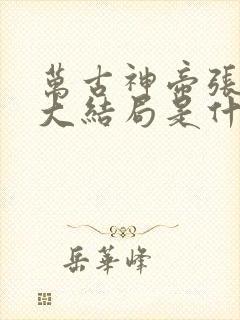 萬古神帝張
大結局是什
岳華峰